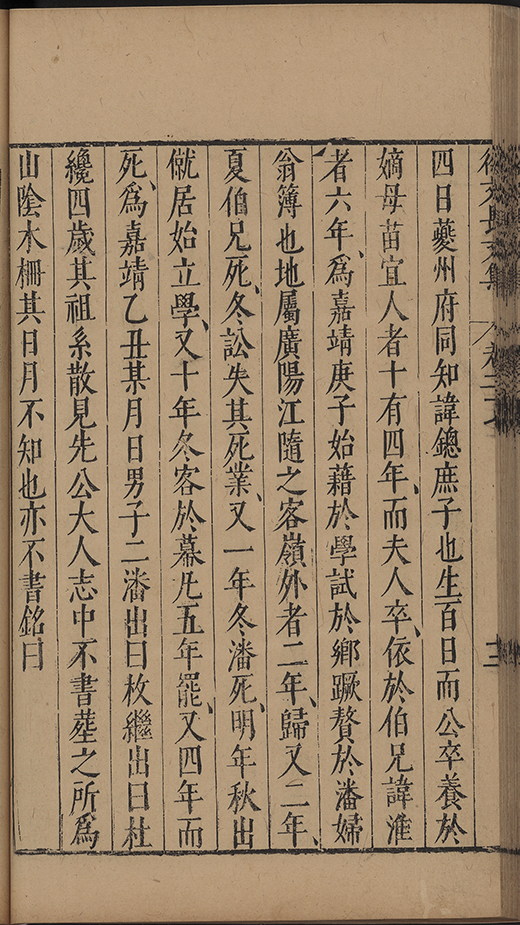 四日夔州府同知諱鏓庶子也生百日而公卒養於
嫡母苗宜人者十有四年、而夫人卒、依於伯兄諱淮
者六年、為嘉靖庚子始藉於學試於鄉蹶贅於潘婦
翁簿也地屬廣陽江隨之客嶺外者二年、歸又二年、
夏伯兄死、冬訟失其死業、又一年冬潘死、明年秋出
僦居始立學、又十年冬客於幕凡五年罷、又四年而
死、為嘉靖乙丑某月日男子二潘出曰枚繼出曰杜
纔四歲其祖系散見先公大人志中不書塟之所為
山陰木柵其日月不知也亦不書銘曰